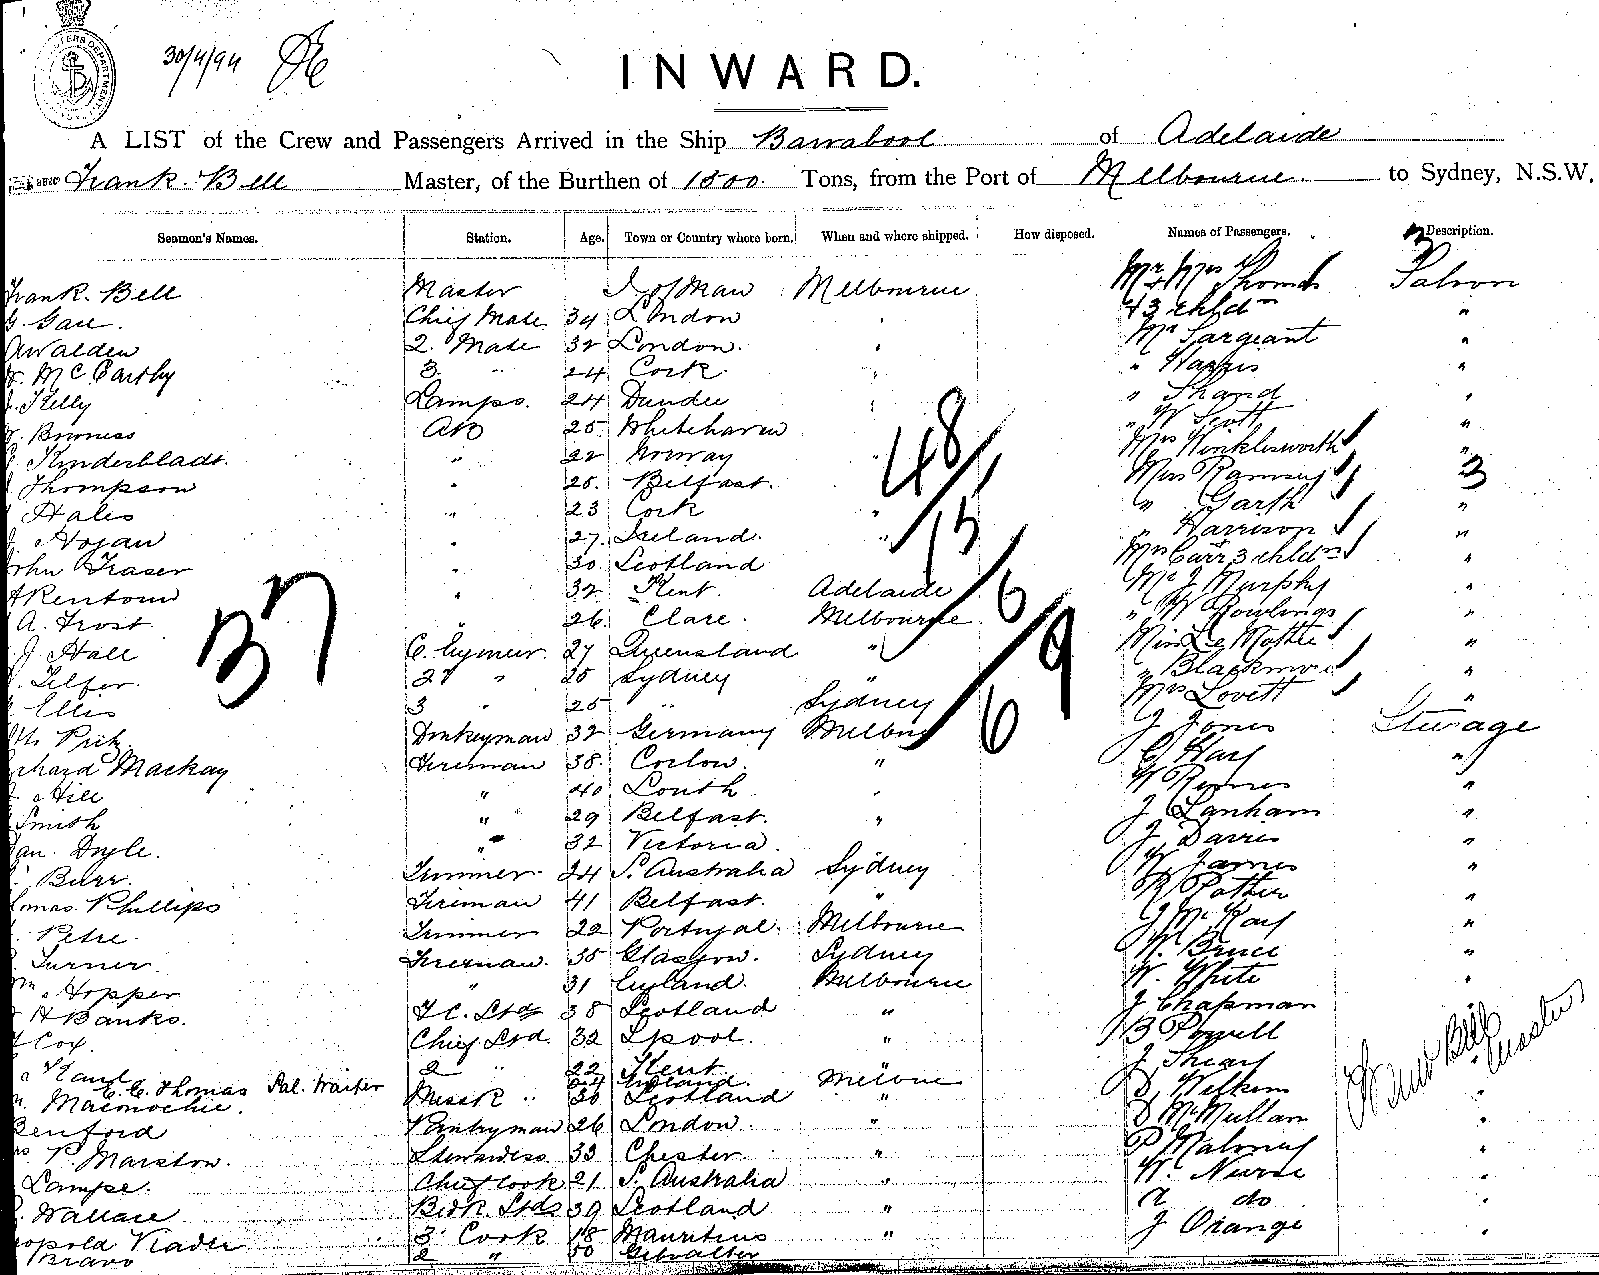 30/4/94
INWARD.
A LIST of the Crew and Passengers Arrived in the Ship Barrabool of Adelaide
Frank Bell Master, of the Burthen of 1800 Tons, from the Port of Melbourne to Sydney, N.S.W.
Seamen's Names. Station. Age. Town or Country where born. When and where shipped. How disposed. Names of Passengers. Description.
Frank Bell Master I of Man Melbourne Mr & Mrs Thomas Saloon
Chief Mate 34 London " & 3 childn "
Walden 2 Mate 32 London " Mr Sargeant "
McCarthy 3 " 24 Cork " " Harris "
Kelly Lamps 24 Dundee " " Shand "
Bowness AB 25 Whitehaven " W Scott "
Kinderbladt " 22 Norway " Mrs Winklesworth "
Thompson " 25 Belfast Miss Ramsey 3
Hales " 23 Cork " " Garth "
Hogan " 27 Ireland " " Harrison "
John Fraser " 30 Scotland Mrs Carr 3 childn "
Rentoun " 32 Kent Adelaide Mr J Murphy "
A. Frost " 26 Clare Melbourne " W Rowlings "
J Hall C. Engineer 27 Queensland " Miss Le Mottee "
Telfer 2 " 25 Sydney " " Blackmore "
Ellis 3 " 25 " Sydney Mrs Lovett "
Donkeyman 32 Germany Melbne J Jones Steerage
Richard Mackay Fireman 38 Carlow " G Hay "
Hill " 40 Louth " W "
Smith " 29 Belfast " J Lanham "
Doyle " 32 Victoria J Davies "
Burr Trimmer 24 S. Australia Sydney W James "
Thomas Phillips Fireman 41 Belfast " R Potter "
Petre Trimmer 22 Portugal Melbourne J McKay "
Turner Fireman 35 Glasgow Sydney W. Bruce "
Hopper " 31 England Melbourne W. White "
H Banks F.C. Std 38 Scotland " J Chapman "
Cox Chief Std 32 Lpool " B Powell "
2 " 22 Kent " J "
E. C. Thomas Sal. Waiter 24 England Melbne D, "
Maconochie Mess R " 30 Scotland " D McMullan "
Benford Pantryman 26 London " P Maloney "
P. Marston Stewardess 33 Chester " W. Nurse "
Lampe Chief Cook 21 S. Australia " do "
Wallace Bedr. Std 39 Scotland " J Orange "
Leopold 3 Cook 18 Mauritius "
Bravo 2 " 50 Gibraltar
37
48
15
6
9
6
Frank Bell
Master